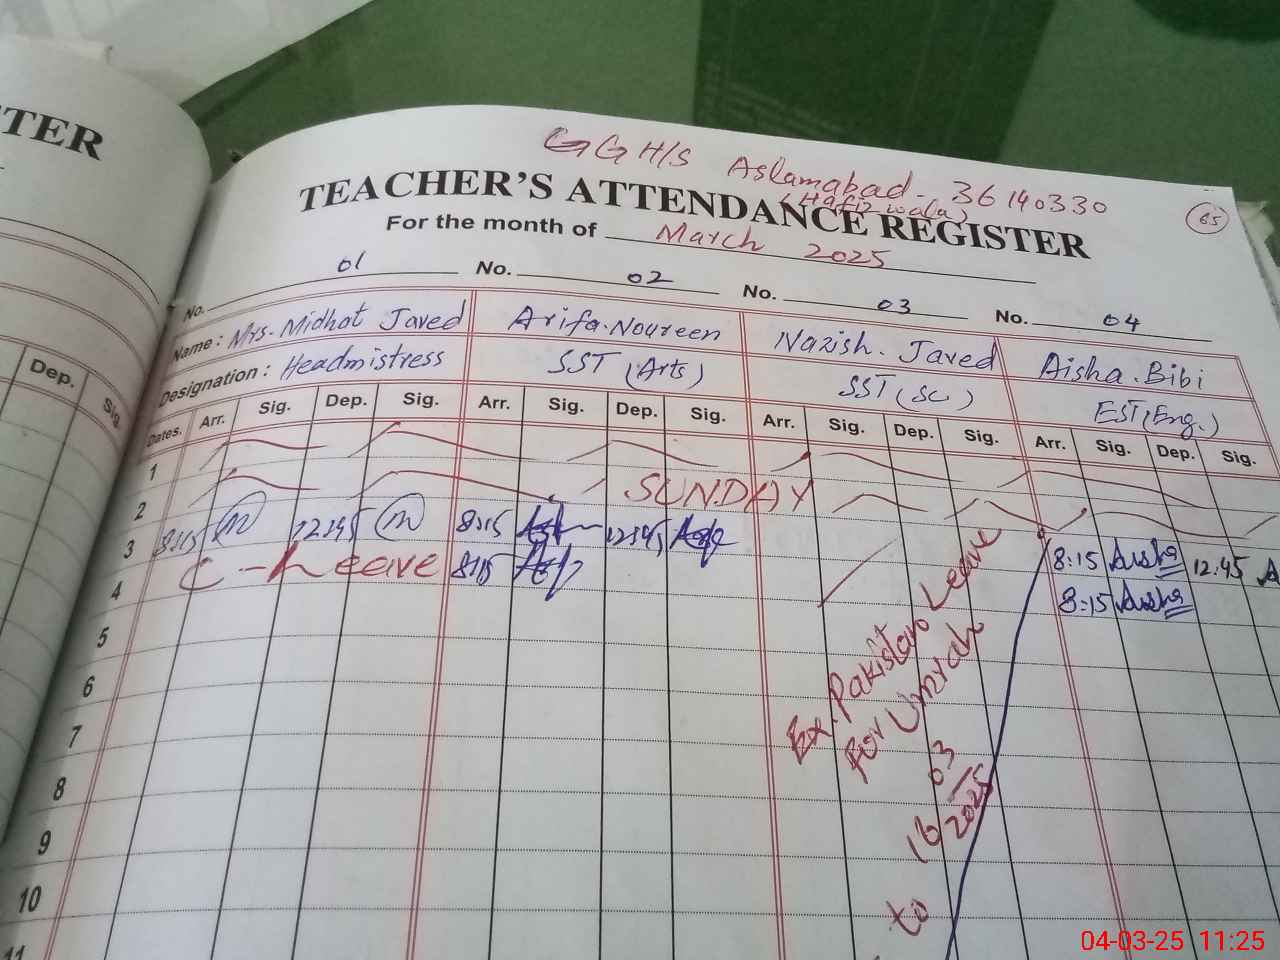 TER
GGH/S Aslamabad - 36140330
(Hafiz wala)
65
TEACHER'S ATTENDANCE REGISTER
For the month of March 2025
No. 01 No. 02 No. 03 No. 04
Name: Mrs. Midhat Javed Arifa.Noureen Nazish. Javed Aisha.Bibi
Designation: Headmistress SST (Arts) SST (SC) EST (Eng.)
Dep. Sig.
Dates. Arr. Sig. Dep. Sig. Arr. Sig. Dep. Sig. Arr. Sig. Dep. Sig. Arr. Sig. Dep. Sig.
1
2 SUNDAY
3 8:15 m 12:45 m 8:15 12:45 8:15 Aisha 12:45 A
4 C-Leave 8:15 8:15 Aisha
5
6
7
8
9
10
11
Ex. Pakistan Leave
For Umrah
to 16 03 2025
04-03-25 11:25